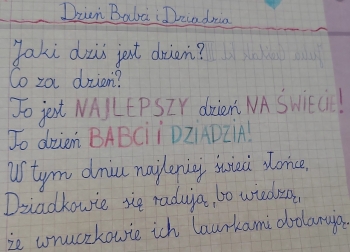 Dzień Babci i Dziadzia
Jaki dziś jest dzień?
Co za dzień?
To jest NAJLEPSZY dzień NA ŚWIECIE!
To dzień BABCI i DZIADZIA!
W tym dniu najlepiej świeci słońce,
Dziadkowie się radują, bo wiedzą,
że wnuczkowie ich laurkami obdarują.